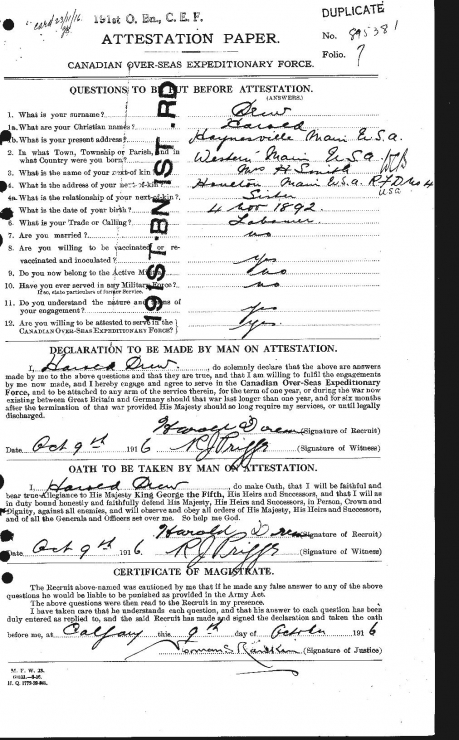 card 23/11/16
191st O. Bn., C. E. F.
DUPLICATE
No. 895381
Folio. 7
ATTESTATION PAPER.
CANADIAN OVER-SEAS EXPEDITIONARY FORCE.
QUESTIONS TO BE PUT BEFORE ATTESTATION.
(ANSWERS.)
1. What is your surname? Drew
1a. What are your Christian names? Harold
1b. What is your present address? Haynesville Main U.S.a.
2. In what Town, Township or Parish, and in
what Country were you born? Western Main U.S.a.
3. What is the name of your next-of-kin? Mrs H Smith
4. What is the address of your next-of-kin? Houlton Main U.S.a. R.F.D No 4
USA
4a. What is the relationship of your next-of-kin? Sister
What is the date of your birth? 4 Nov 1892.
6. What is your Trade or Calling? Labourer
7. Are you married? no
8. Are you willing to be vaccinated or re-
vaccinated and inoculated? Yes
9. Do you now belong to the Active Militia? No
10. Have you ever served in any Military Force? no
If so, state particulars of former Service.
11. Do you understand the nature and terms of
your engagement? Yes
12. Are you willing to be attested to serve in the
CANADIAN OVER-SEAS EXPEDITIONARY FORCE? Yes.
191ST. BN 1ST. RD
DECLARATION TO BE MADE BY MAN ON ATTESTATION.
I, Harold Drew, do solemnly declare that the above are answers
made by me to the above questions and that they are true, and that I am willing to fulfil the engagements
by me now made, and I hereby engage and agree to serve in the Canadian Over-Seas Expeditionary
Force, and to be attached to any arm of the service therein, for the term of one year, or during the war now
existing between Great Britain and Germany should that war last longer than one year, and for six months
after the termination of that war provided His Majesty should so long require my services, or until legally
discharged.
Harold Drew (Signature of Recruit)
Date Oct 9th 1916 R J Priffs (Signature of Witness)
OATH TO BE TAKEN BY MAN ON ATTESTATION.
I, Harold Drew, do make Oath, that I will be faithful and
bear true Allegiance to His Majesty King George the Fifth, His Heirs and Successors, and that I will as
in duty bound honestly and faithfully defend His Majesty, His Heirs and Successors, in Person, Crown and
Dignity, against all enemies, and will observe and obey all orders of His Majesty, His Heirs and Successors,
and of all the Generals and Officers set over me. So help me God.
Harold Drew (Signature of Recruit)
Date Oct 9th 1916 R J Priffs (Signature of Witness)
CERTIFICATE OF MAGISTRATE.
The Recruit above-named was cautioned by me that if he made any false answer to any of the above
questions he would be liable to be punished as provided in the Army Act.
The above questions were then read to the Recruit in my presence.
I have taken care that he understands each question, and that his answer to each question has been
duly entered as replied to, and the said Recruit has made and signed the declaration and taken the oath
before me, at Calgary this 9th day of October 1916
(Signature of Justice)
M. F. W. 23.
H. Q. 1772-39-841.